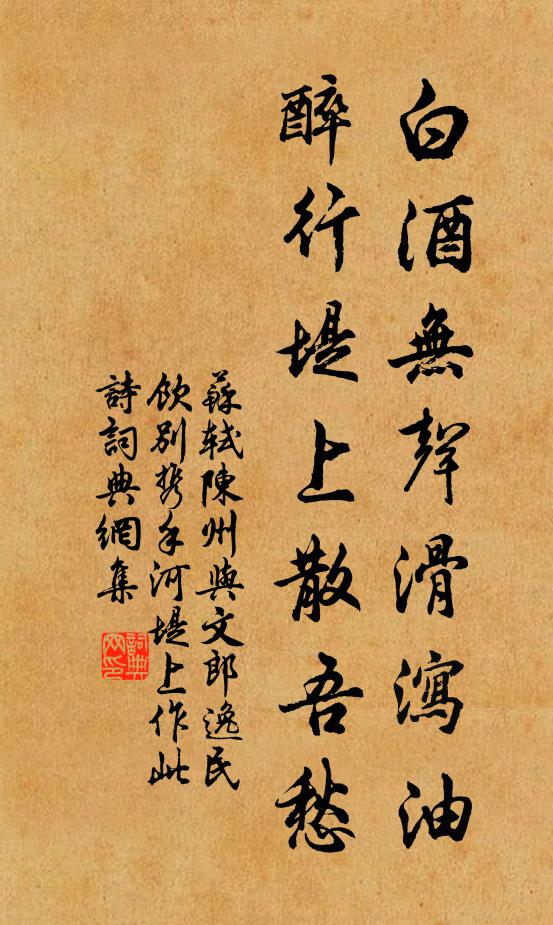 白酒無聲滑瀉油
醉行堤上散吾愁
蘇軾陳州與文郎逸民
飲別攜手河堤上作此
詩詞典網集
詞典
网印